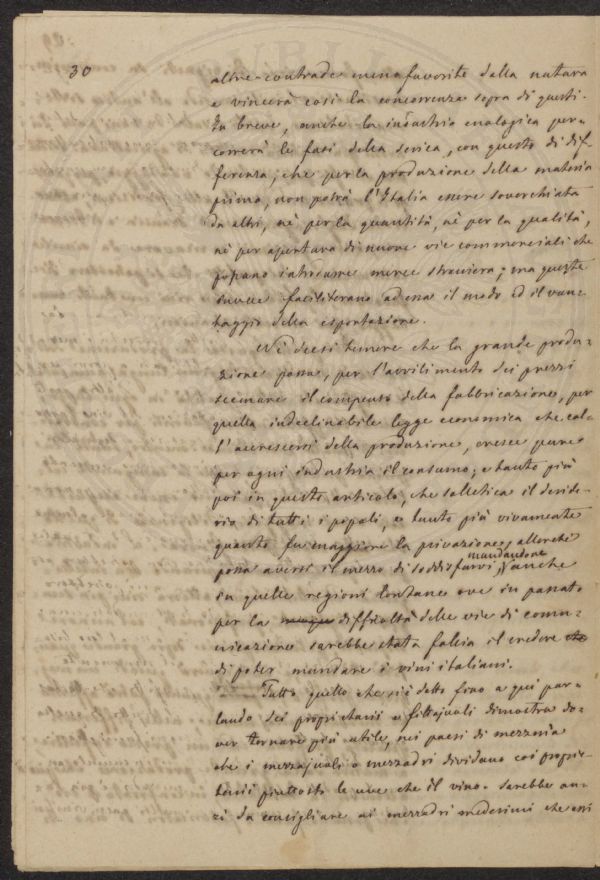 30
altre contrade meno favorite dalla natura
e vincerà così la concorrenza sopra di questi.
In breve, anche la industria enologica per-
correrà le fasi della serica, con questo di dif-
ferenza, che per la produzione della materia
prima, non potrà l'Italia essere soverchiata
da altri, nè per la quantità, nè per la qualità,
nè per apertura di nuove vie commerciali che
possano introdurre merce straniera; ma queste
invece faciliteranno ad essa il modo ed il van-
taggio della esportazione.
Nè deesi temere che la grande produ-
zione possa, per l'avvilimento dei prezzi
scemare il compenso della fabbricazione, per
quella indeclinabile legge economica che col-
l'accrescersi della produzione, cresce pure
per ogni industria il consumo; e tanto più
poi in questo articolo, che solletica il deside-
rio di tutti i popoli, e tanto più vivamente
quanto fu maggiore la privazione, allorchè
possa aversi il mezzo di soddisfarvi, mandandone anche
in quelle regioni lontane ove in passato
per la difficoltà delle vie di comu-
nicazione sarebbe stata follia il credere che
di poter mandare i vini italiani.
Tutto quello che si è detto fino a qui par-
lando dei proprietarii e fittajuoli dimostra do-
ver tornare più utile, nei paesi di mezzeria
che i mezzajuoli o mezzadri dividano coi proprie-
tarii piuttosto le uve che il vino. Sarebbe an-
zi da consigliare ai mezzadri medesimi che essi